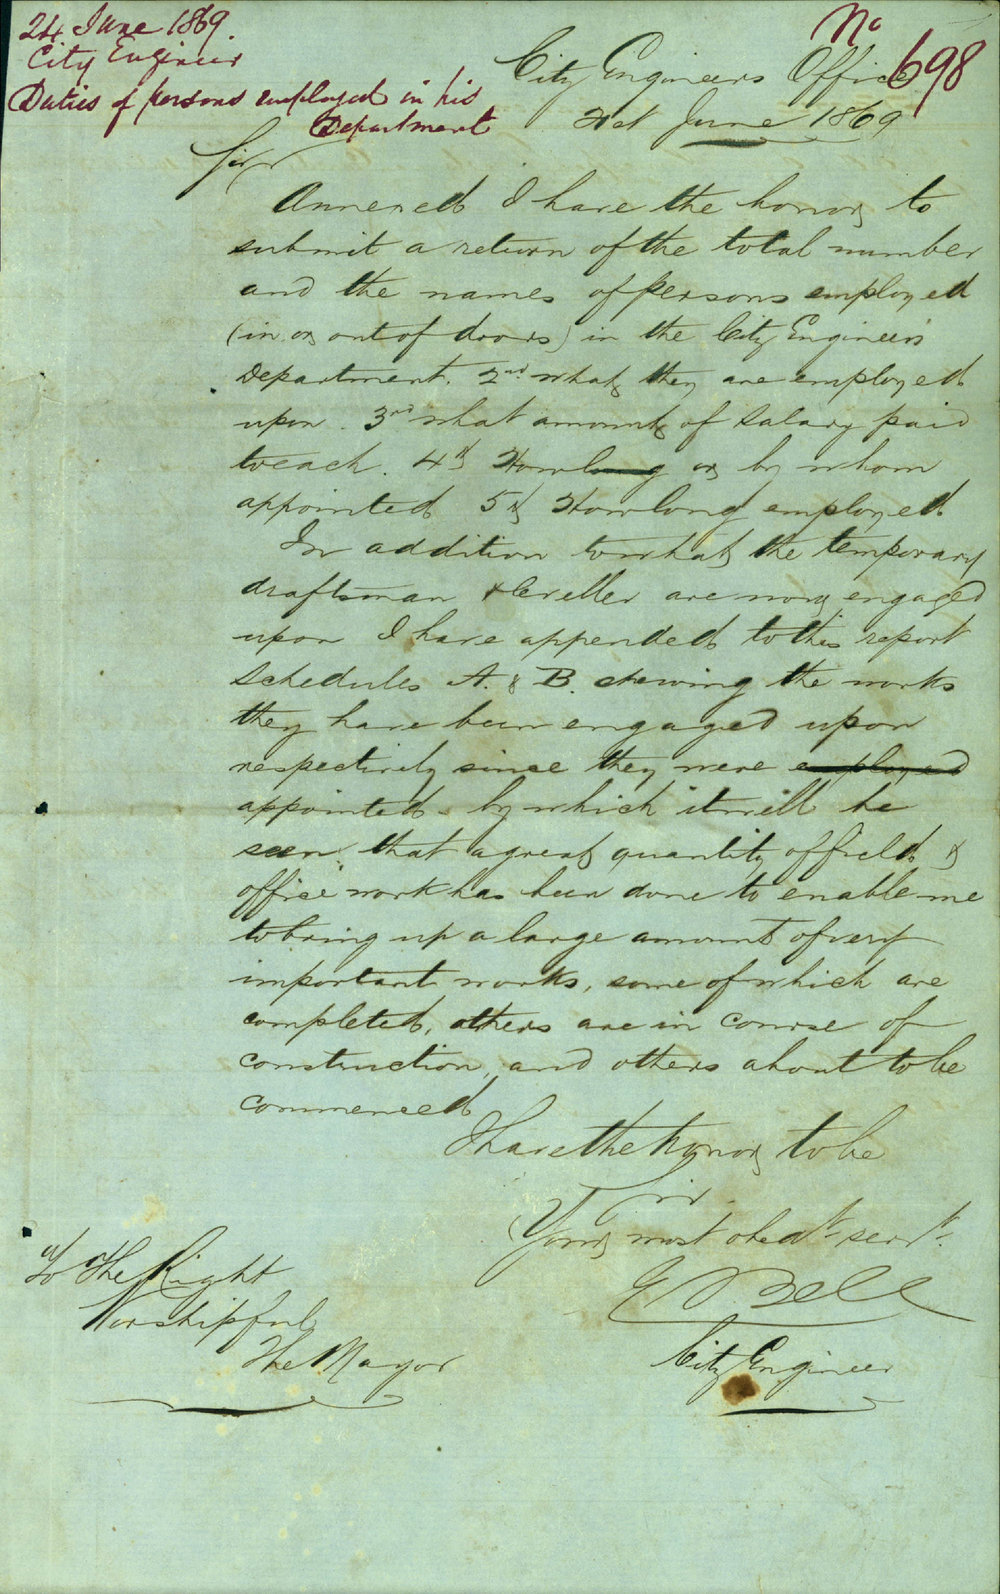 24 June 1869.
City Engineer
Duties of persons employed in his
Department
No
698
City Engineers Office
21st June 1869
Sir
Annexed I have the honor to
submit a return of the total number
and the names of persons employed
(in or out of doors) in the City Engineers
Department. 2nd what they are employed
upon. 3rd what amount of Salary paid
to each. 4th How long or by whom
appointed 5th How long employed
In addition to what the temporary
draftsman & leveller are now engaged
upon I have appended to this report
Schedules A. & B. shewing the works
they have been engaged upon
respectively since they were employed
appointed. by which it will be
seen that a great quantity of field &
office work has been done to enable me
to bring up a large amount of very
important works, some of which are
completed, others are in course of
construction, and others about to be
commenced
I have the honor to be
Sir
Your most obedt. servt.
E Bell
City Engineer
To The Right
Worshipful
The Mayor